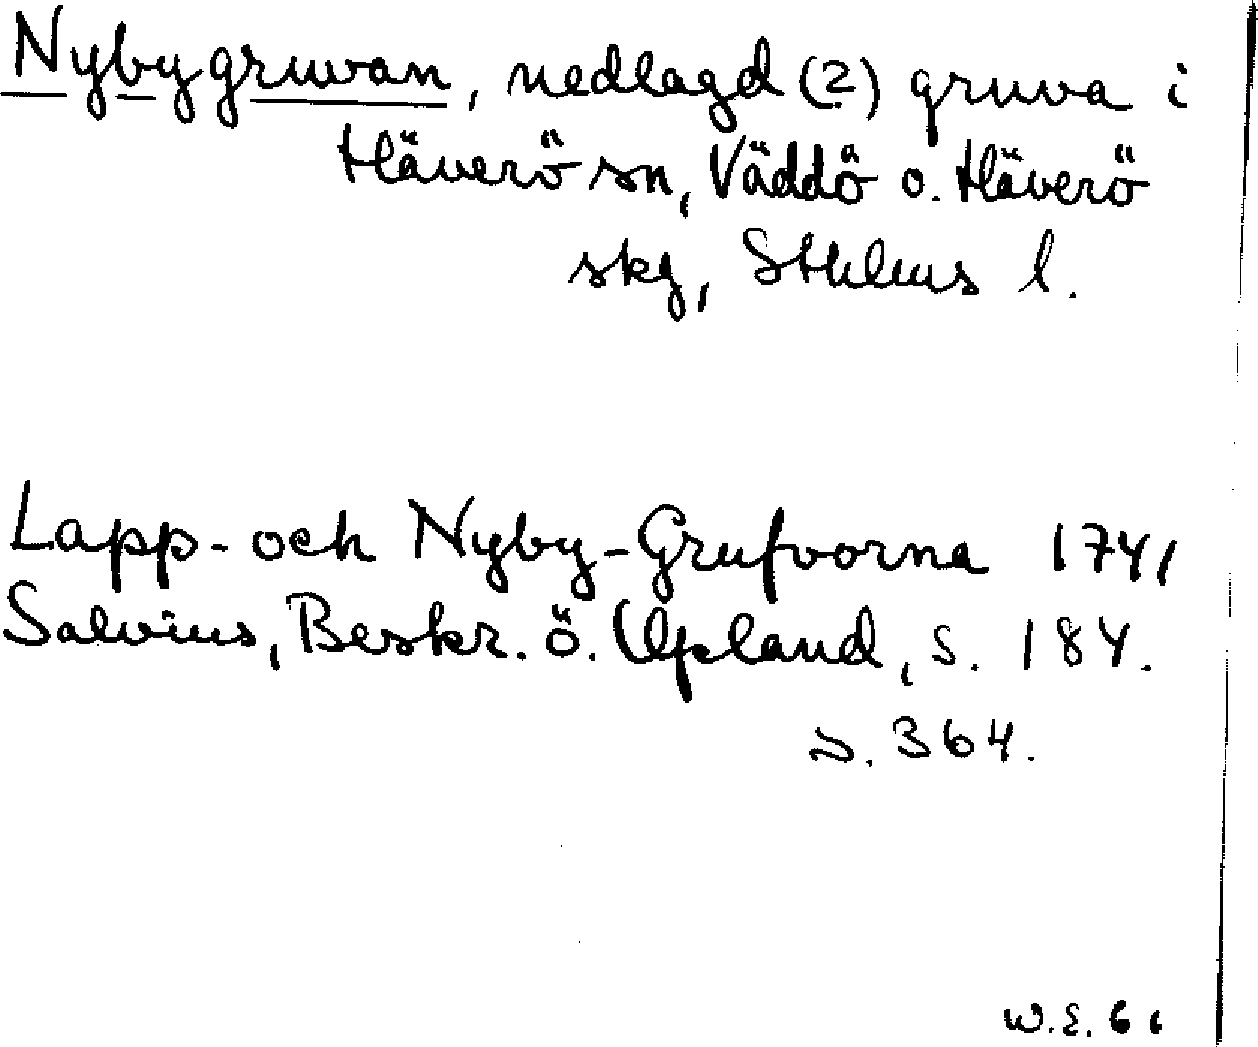 Nybygruvan, nedlagd (?) gruva i
Häverö sn, Väddö o. Häverö
skg, Sthlms l.
Lapp- och Nyby-Grufvorna 1741
Salvius, Beskr. ö. Upland, s. 184.
s. 364.
W.E. 61